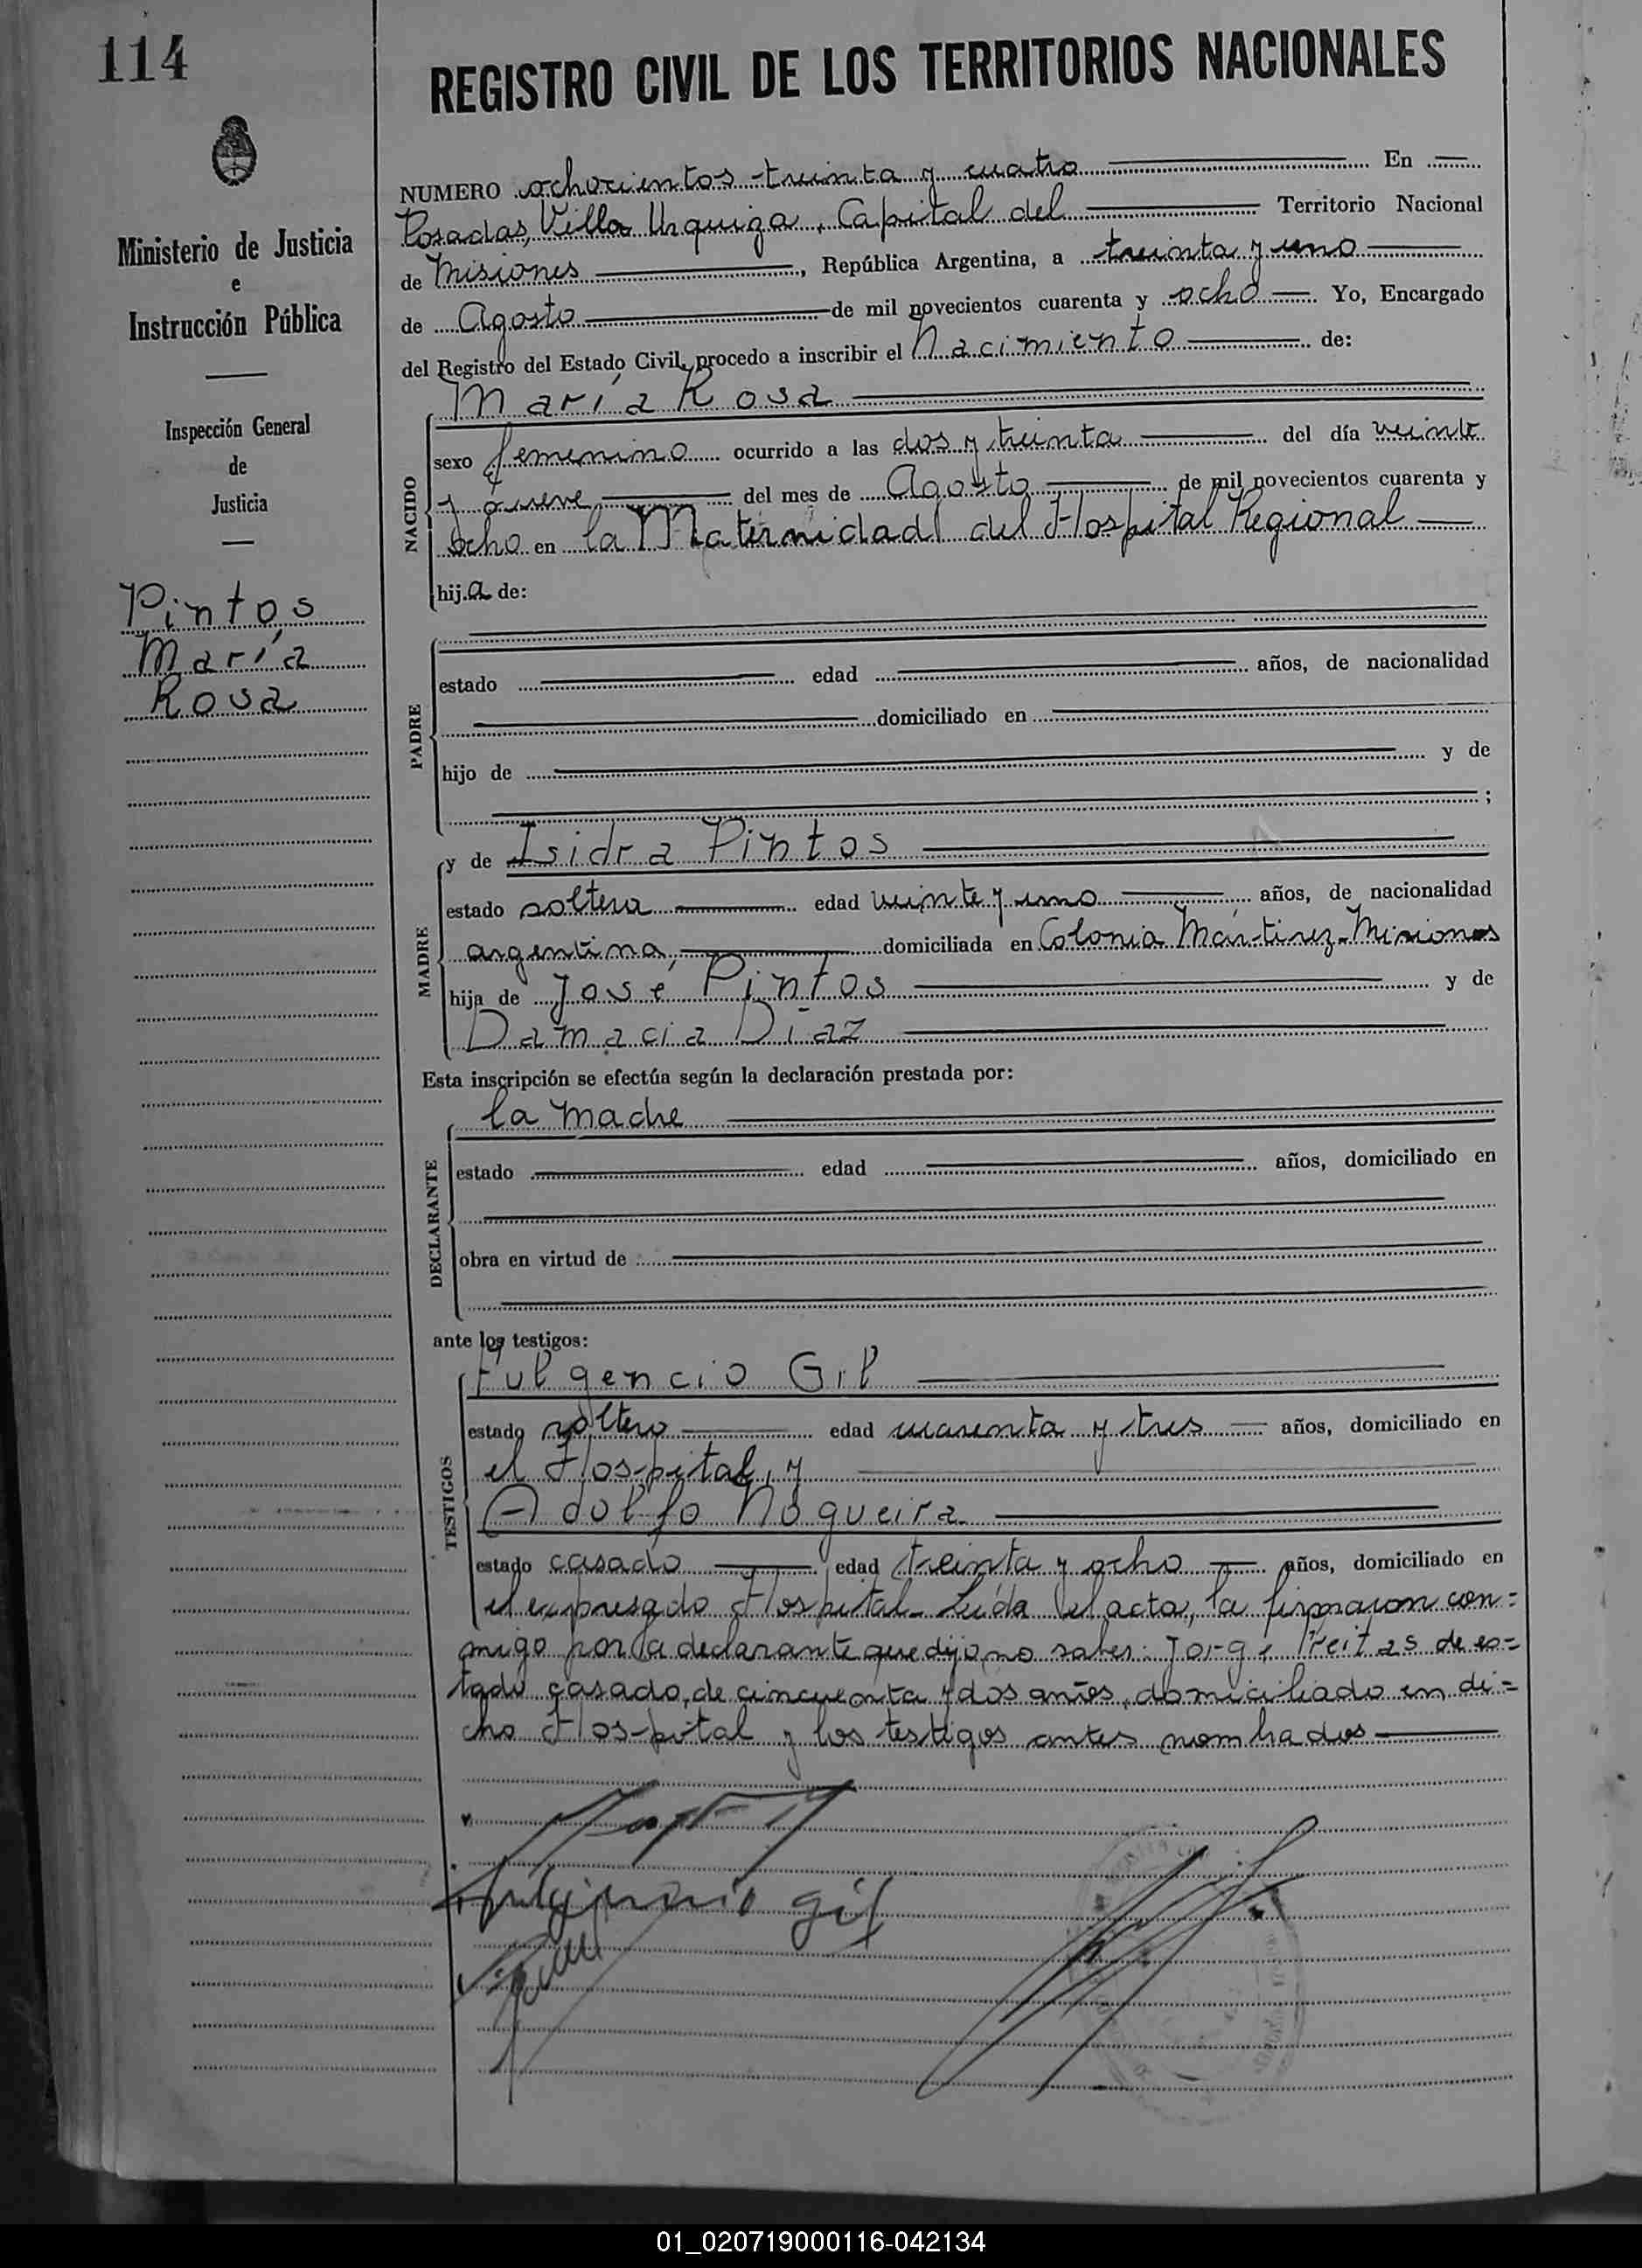 114
REGISTRO CIVIL DE LOS TERRITORIOS NACIONALES
Ministerio de Justicia
e
Instrucción Pública
Inspección General
de
Justicia
Pintos
María
Rosa
NUMERO ochocientos treinta y cuatro En
Posadas, Villa Urquiza, Capital del Territorio Nacional
de Misiones, República Argentina, a treinta y uno
de Agosto de mil novecientos cuarenta y ocho Yo, Encargado
del Registro del Estado Civil, procedo a inscribir el Nacimiento de:
María Rosa
NACIDO
sexo femenino ocurrido a las dos y treinta del día veinte
y nueve del mes de Agosto de mil novecientos cuarenta y
ocho en la Maternidad del Hospital Regional
hija de:
PADRE
estado edad años, de nacionalidad
domiciliado en
hijo de y de
;
MADRE
y de Isidra Pintos
estado soltera edad veinte y uno años, de nacionalidad
argentina, domiciliada en Colonia Mártirez-Misiones
hija de José Pintos y de
Damacia Díaz
Esta inscripción se efectúa según la declaración prestada por:
DECLARANTE
la madre
estado edad años, domiciliado en
obra en virtud de
ante los testigos:
TESTIGOS
Fulgencio Gil
estado soltero edad cuarenta y tres años, domiciliado en
el Hospital, y
Adolfo Nogueira
estado casado edad treinta y ocho años, domiciliado en
el expresado Hospital. Leída el acta, la firmaron con=
migo por la declarante que dijo no saber: Jorge Freitas de es=
tado casado, de cincuenta y dos años, domiciliado en di=
cho Hospital y los testigos antes nombrados
Fulgencio Gil
01_020719000116-042134